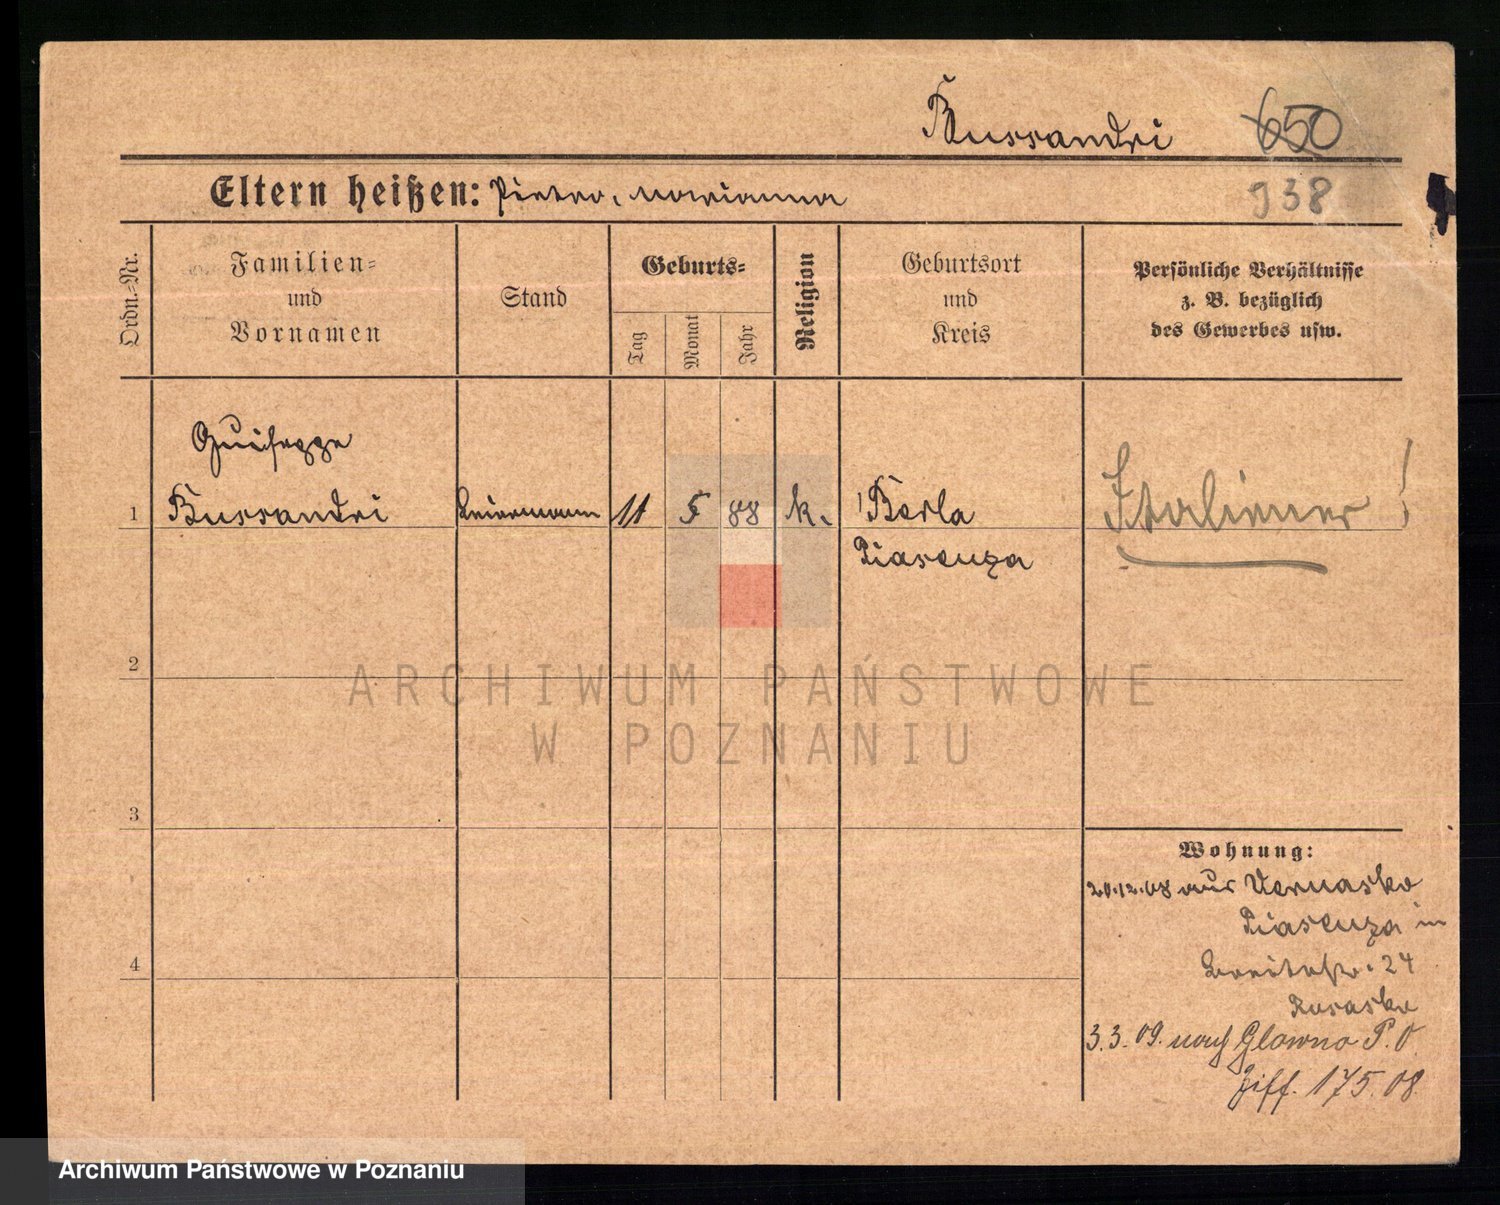 Bussandri 650
Eltern heißen: Pietro, Marianna 938
Ordn.-Nr.
Familien-
und
Vornamen
Stand
Geburts-
Tag
Monat
Jahr
Religion
Geburtsort
und
Kreis
Persönliche Verhältnisse
z. B. bezüglich
des Gewerbes usw.
Guiseppe
1 Bussandri Leiermann 11 5 88 k. Borla Italiener!
Piacenza
2
ARCHIWUM PAŃSTWOWE
W POZNANIU
3
Wohnung:
20.12.08 aus Vernasko
Piacenza in
Breitestr. 24
4
3.3.09. nach Glowno P.O.
175.08
Archiwum Państwowe w Poznaniu